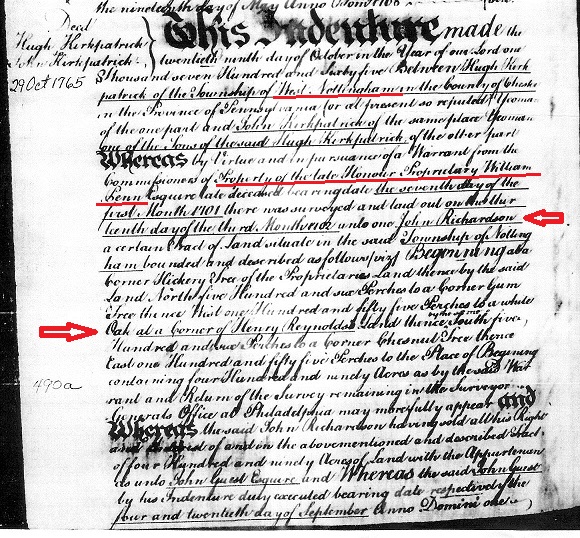 the nineteenth day of May Anno Dom 1768
Deed
Hugh Kirkpatrick
John Kirkpatrick
29 Oct 1765
490 a
This Indenture made the
twentieth ninth day of October in the Year of our Lord one
thousand seven Hundred and Sixty five Between Hugh Kirk
patrick of the Township of West Nottingham in the County of Chester
in the Province of Pennsylvania (or at present so reputed) Yeoman
of the one part and John Kirkpatrick of the same place Yeoman
one of the Sons of the said Hugh Kirkpatrick of the other part
Whereas by Virtue and in pursuance of a Warrant from the
Commissioners of Property of the late Honour Proprietary William
Penn Esquire late deceased bearing date the seventh day of the
first Month 1701 there was surveyed and laid out on the thir
teenth day of the third Month 1702 unto one John Richardson
a certain tract of Land situate in the said Township of Notting
ham bounded and described as follows viz Begining at a
Corner Hickery Tree of the Proprietaries Land thence by the said
Land North five Hundred and six Perches to a Corner Gum
Tree thence West one Hundred and fifty five Perches to a white
Oak at a Corner of Henry Reynolds's Land thence by the same South five
Hundred and six Perches to a Corner Chesnut Tree thence
East one Hundred and fifty five Perches to the Place of Begining
containing four Hundred and ninety Acres as by the said War
rant and Return of the Survey remaining in the Surveyor
Generals Office at Philadelpia may more fully appear and
Whereas the said John Richardson having sold all his Right
and of and in the abovementioned and described Tract
of four Hundred and ninety Acres of Land with the Appurtenan
ces unto John Guest Esquire and Whereas the said John Guest
by his Indenture duly executed bearing date respectively the
four and twentieth day of September Anno Domini one